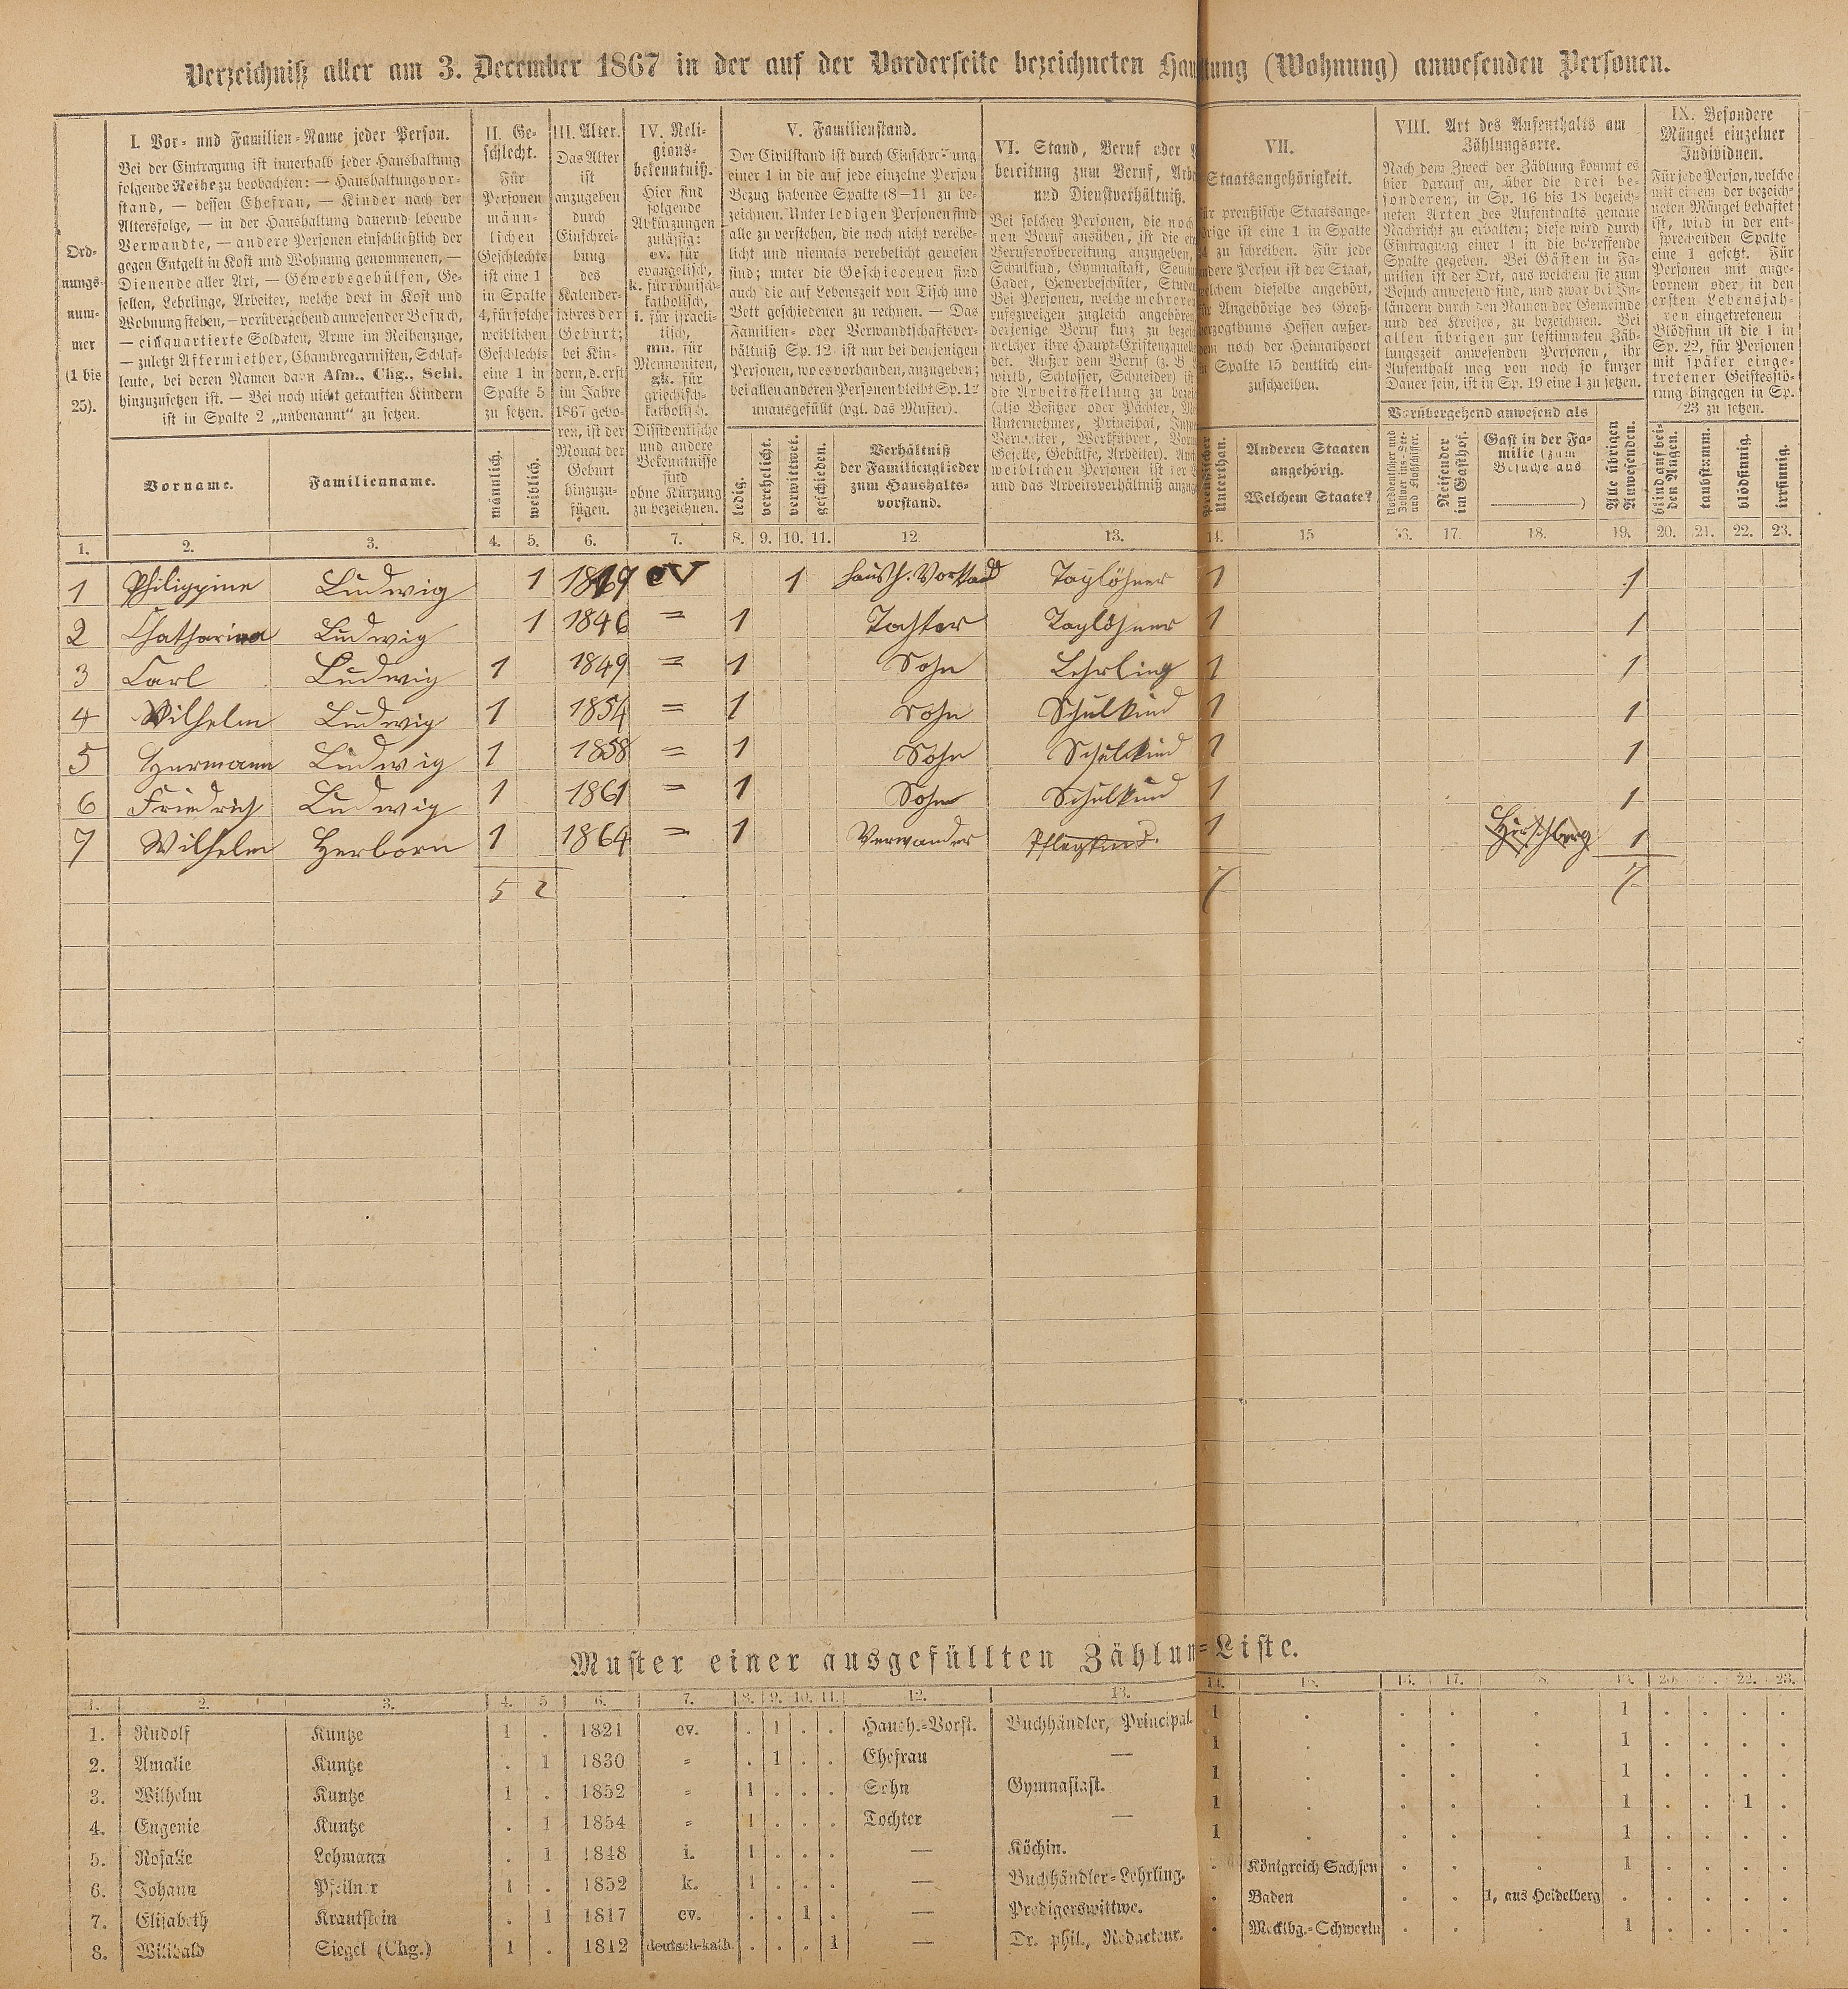 Verzeichniß aller am 3. December 1867 in der auf der Vorderseite bezeichneten Haushaltung (Wohnung) anwesenden Personen.
Ord-
nungs-
num-
mer
(1 bis
25).
I. Vor- und Familien-Name jeder Person.
Bei der Eintragung ist innerhalb jeder Haushaltung
folgende Reihe zu beobachten: — Haushaltungsvor-
stand, — dessen Ehefrau, — Kinder nach der
Altersfolge, — in der Haushaltung dauernd lebende
Verwandte, — andere Personen einschließlich der
gegen Entgelt in Kost und Wohnung genommenen, —
Dienende aller Art, — Gewerbsgehülfen, Ge-
sellen, Lehrlinge, Arbeiter, welche dort in Kost und
Wohnung stehen, — vorübergehend anwesender Besuch,
— einquartierte Soldaten, Arme im Reihenzuge,
— zuletzt Aftermiether, Chambregarnisten, Schlaf-
leute, bei deren Namen dann Afm., Chg., Schl.
hinzuzusetzen ist. — Bei noch nicht getauften Kindern
ist in Spalte 2 „unbenannt" zu setzen.
Vorname.
Familienname.
II. Ge-
schlecht.
Für
Personen
männ-
lichen
Geschlechts
ist eine 1
in Spalte
4, für solche
weiblichen
Geschlechts
eine 1 in
Spalte 5
zu setzen.
männlich.
weiblich.
III. Alter.
Das Alter
ist
anzugeben
durch
Einschrei-
bung
des
Kalender-
jahres der
Geburt;
bei Kin-
dern, d. erst
im Jahre
1867 gebo-
ren, ist der
Monat der
Geburt
hinzuzu-
fügen.
IV. Reli-
gions-
bekenntniß.
Hier sind
folgende
Abkürzungen
zulässig:
ev. für
evangelisch,
k. für römisch-
katholisch,
i. für israeli-
tisch,
mn. für
Mennoniten,
gk. für
griechisch-
katholisch.
Dissidentische
und andere
Bekenntnisse
sind
ohne Kürzung
zu bezeichnen.
V. Familienstand.
Der Civilstand ist durch Einschreibung
einer 1 in die auf jede einzelne Person
Bezug habende Spalte (8—11) zu be-
zeichnen. Unter ledigen Personen sind
alle zu verstehen, die noch nicht verehe-
licht und niemals verehelicht gewesen
sind; unter die Geschiedenen sind
auch die auf Lebenszeit von Tisch und
Bett geschiedenen zu rechnen. — Das
Familien- oder Verwandtschaftsver-
hältniß Sp. 12 ist nur bei denjenigen
Personen, wo es vorhanden, anzugeben;
bei allen anderen Personen bleibt Sp. 12
unausgefüllt (vgl. das Muster).
ledig.
verehelicht.
verwittwet.
geschieden.
Verhältniß
der Familienglieder
zum Haushalts-
vorstand.
VI. Stand, Beruf oder
bereitung zum Beruf,
und Dienstverhältniß.
Bei solchen Personen, die noch
nen Beruf ausüben, ist die
Berufsvorbereitung anzugeben,
Schulkind, Gymnasiast,
Cadet, Gewerbeschüler,
Bei Personen, welche mehreren
rufszweigen zugleich angehören
derjenige Beruf kurz zu
welcher ihre Haupt-Existenzquelle
det. Außer dem Beruf (z. B.
wirth, Schlosser, Schneider) ist
die Arbeitsstellung zu
(also Besitzer oder Pächter,
Unternehmer, Principal,
Verwalter, Werkführer,
Geselle, Gehülfe, Arbeiter).
weiblichen Personen ist der
und das Arbeitsverhältniß
VII.
Staatsangehörigkeit.
für preußische Staatsange-
hörige ist eine 1 in Spalte
14 zu schreiben. Für jede
andere Person ist der Staat,
welchem dieselbe angehört,
für Angehörige des Groß-
herzogthums Hessen außer-
dem noch der Heimathsort
in Spalte 15 deutlich ein-
zuschreiben.
Preußischer
Unterthan.
Anderen Staaten
angehörig.
Welchem Staate?
VIII. Art des Aufenthalts am
Zählungsorte.
Nach dem Zweck der Zählung kommt es
hier darauf an, über die drei be-
sonderen, in Sp. 16 bis 18 bezeich-
neten Arten des Aufenthalts genaue
Nachricht zu erhalten; diese wird durch
Eintragung einer 1 in die betreffende
Spalte gegeben. Bei Gästen in Fa-
milien ist der Ort, aus welchem sie zum
Besuch anwesend sind, und zwar bei In-
ländern durch den Namen der Gemeinde
und des Kreises, zu bezeichnen. Bei
allen übrigen zur bestimmten Zäh-
lungszeit anwesenden Personen, ihr
Aufenthalt mag von noch so kurzer
Dauer sein, ist in Sp. 19 eine 1 zu setzen.
Vorübergehend anwesend als
Norddeutscher und
Zollvereins-See-
und Flußschiffer.
Reisender
im Gasthof.
Gast in der Fa-
milie (zum
Besuche aus
)
Alle übrigen
Anwesenden.
IX. Besondere
Mängel einzelner
Individuen.
Für jede Person, welche
mit einem der bezeich-
neten Mängel behaftet
ist, wird in der ent-
sprechenden Spalte
eine 1 gesetzt. Für
Personen mit ange-
bornem oder in den
ersten Lebensjah-
ren eingetretenem
Blödsinn ist die 1 in
Sp. 22, für Personen
mit später einge-
tretener Geistesstö-
rung hingegen in Sp.
23 zu setzen.
blind auf bei-
den Augen.
taubstumm.
blödsinnig.
irrsinnig.
1. 2. 3. 4. 5. 6. 7. 8. 9. 10. 11. 12. 13. 14. 15 16. 17. 18. 19. 20. 21. 22. 23.
1 Philippine Ludwig 1 1819 ev 1 Haush. Vorstand Taglöhner 1 1
2 Chatharina Ludwig 1 1846 = 1 Tochter Taglöhner 1 1
3 Carl Ludwig 1 1849 = 1 Sohn Lehrling 1 1
4 Wilhelm Ludwig 1 1854 = 1 Sohn Schulkind 1 1
5 Hermann Ludwig 1 1858 = 1 Sohn Schulkind 1 1
6 Friedrich Ludwig 1 1861 = 1 Sohn Schulkind 1 1
7 Wilhelm Herborn 1 1864 = 1 Verwander Pflegkind. 1 Hirschberg 1
5 2 7 7
Muster einer ausgefüllten Zählungs-Liste.
1. 2. 3. 4. 5. 6. 7. 8. 9. 10. 11. 12. 13. 14. 15. 16. 17. 18. 19. 20. 21. 22. 23.
1. Rudolf Kuntze 1 . 1821 ev. . 1 . . Haush.-Vorst. Buchhändler, Principal. 1 . . . . 1 . . . .
2. Amalie Kuntze . 1 1830 " . 1 . . Ehefrau — 1 . . . . 1 . . . .
3. Wilhelm Kuntze 1 . 1852 " 1 . . . Sohn Gymnasiast. 1 . . . . 1 . . . .
4. Eugenie Kuntze . 1 1854 " 1 . . . Tochter — 1 . . . . 1 . . 1 .
5. Rosalie Lehmann . 1 1848 i. 1 . . . — Köchin. 1 . . . . 1 . . . .
6. Johann Pfeilner 1 . 1852 k. 1 . . . — Buchhändler-Lehrling. . Königreich Sachsen . . . 1 . . . .
7. Elisabeth Krautstein . 1 1817 ev. . . 1 . — Predigerswittwe. . Baden . . 1, aus Heidelberg . . . . .
8. Willibald Siegel (Chg.) 1 . 1812 deutsch-kath. . . . 1 — Dr. phil., Redacteur. . Mecklbg.-Schwerin . . . 1 . . . .